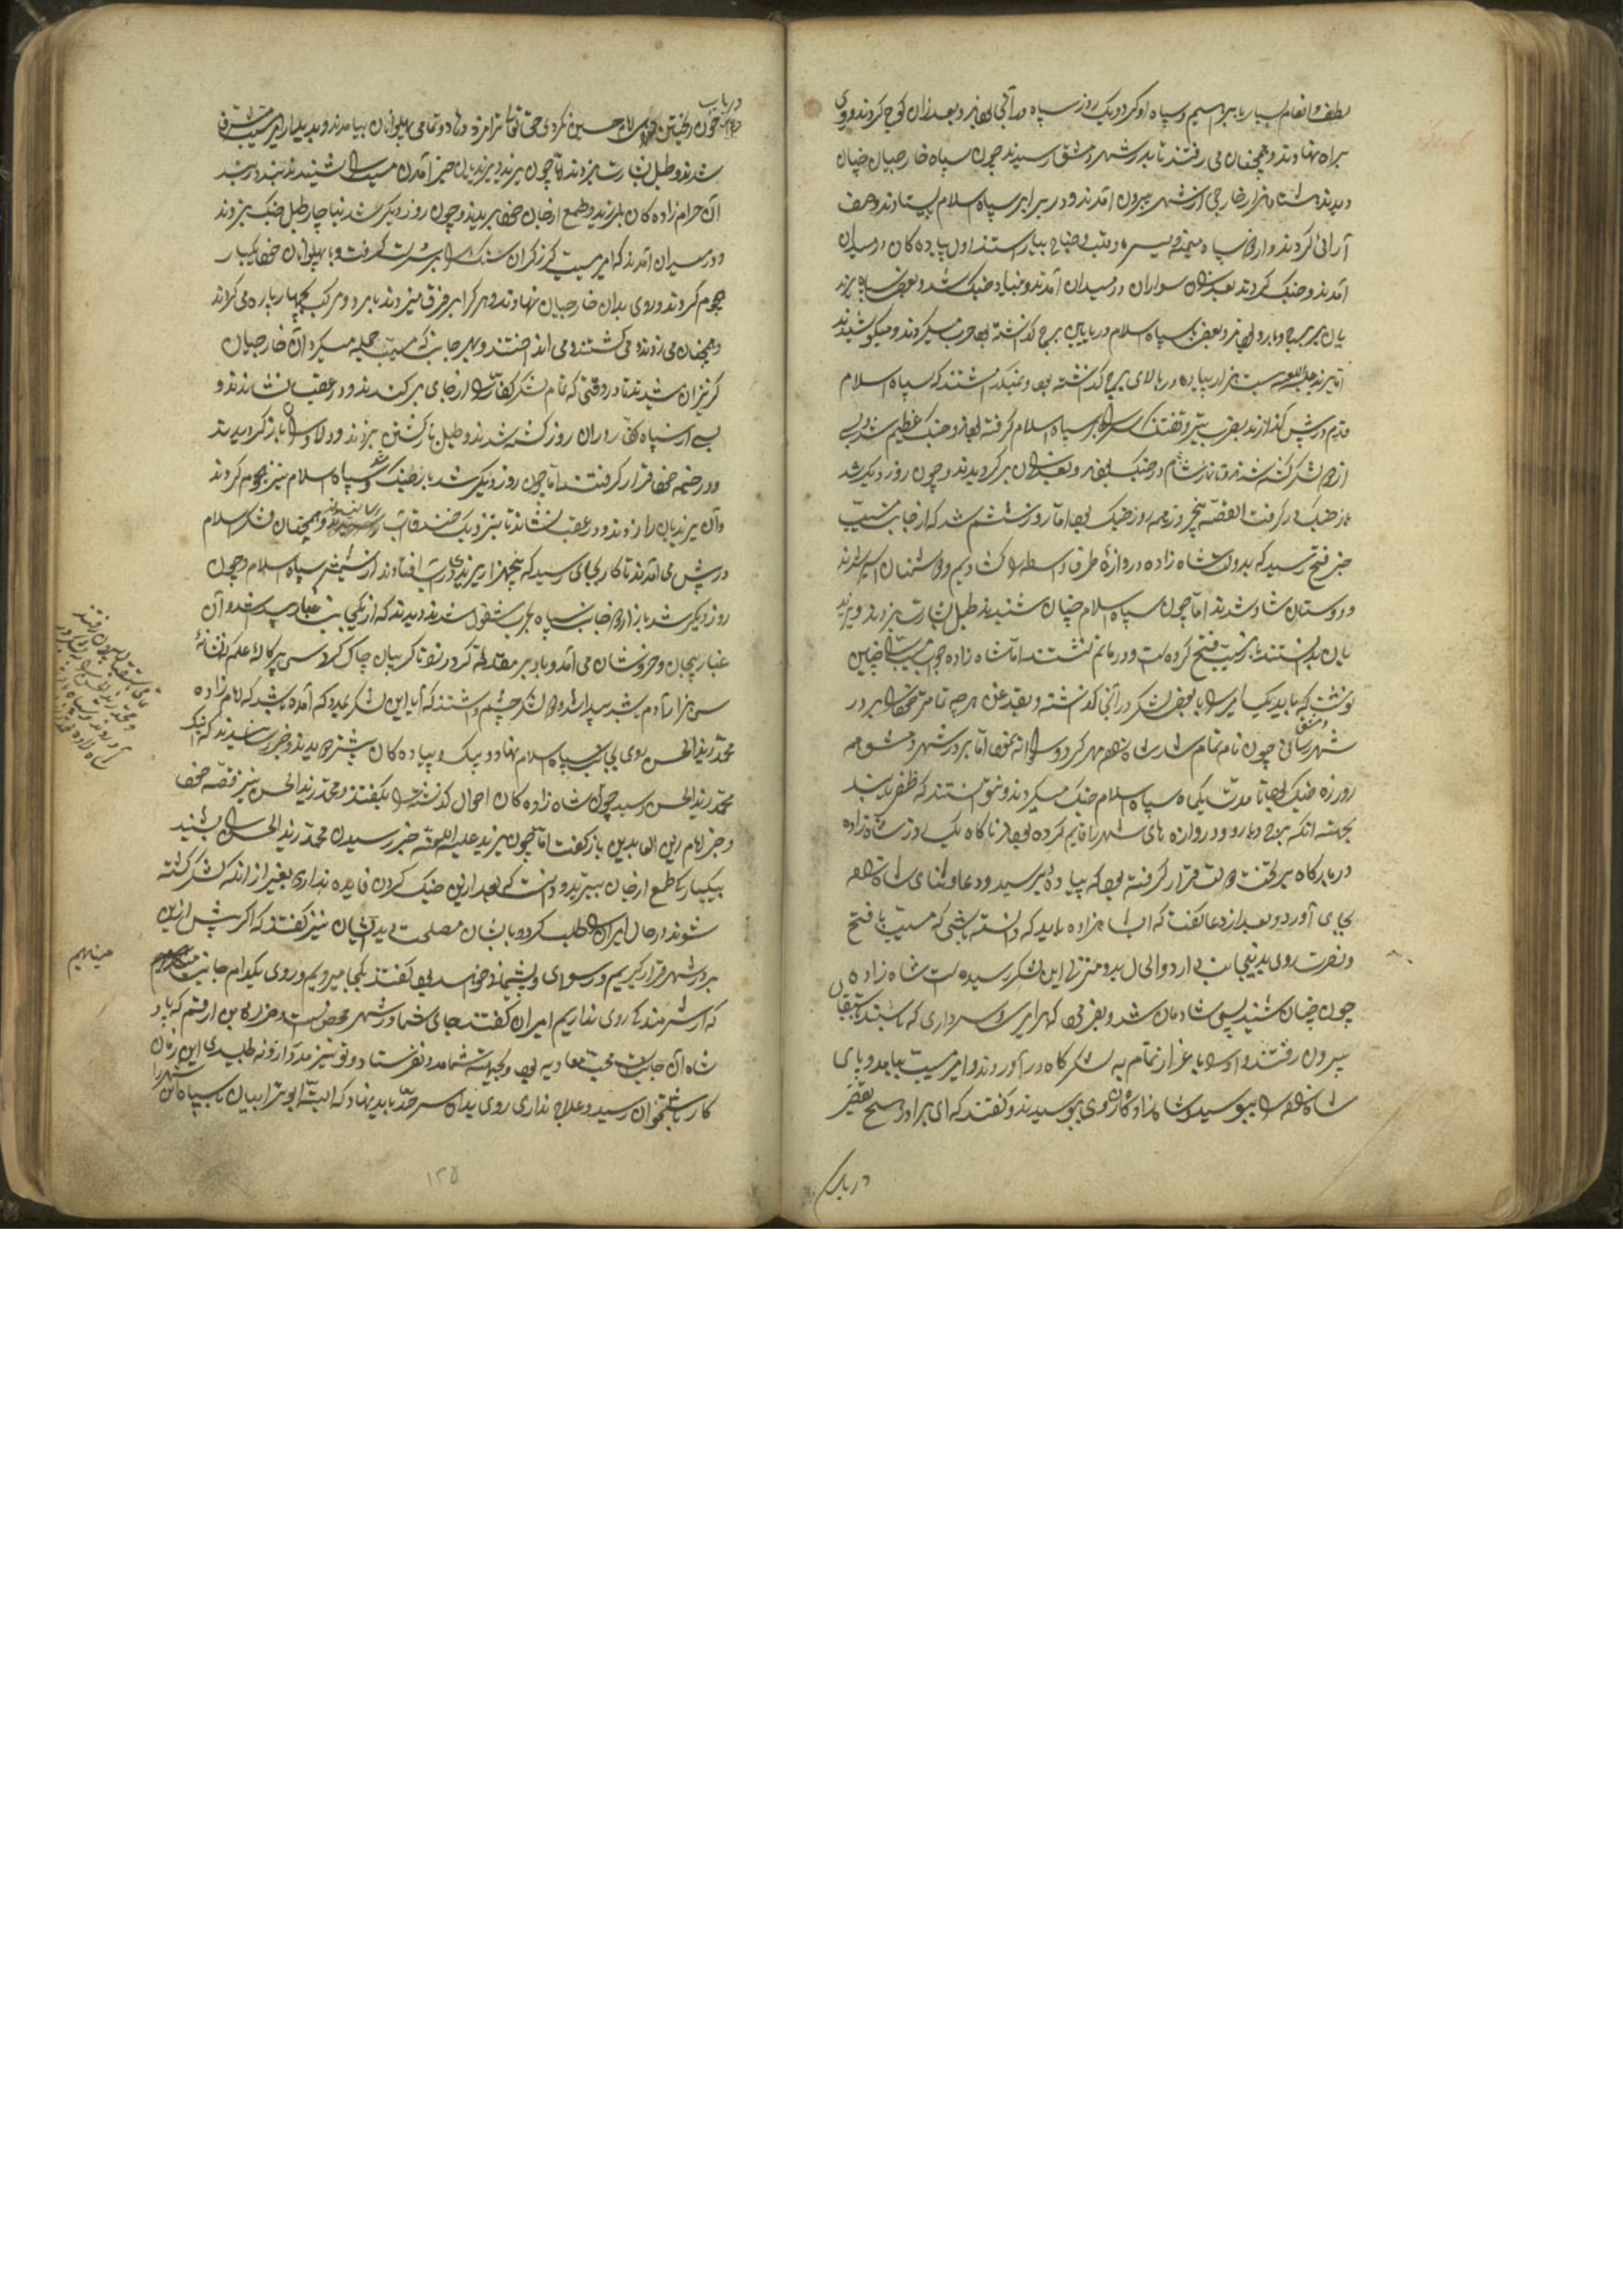 لطف و انعام بسیار با ابراهیم و سپاه او کرد و یک روز سپاه در آنجا بودند و بعد از آن کوچ کردند و روی
براه نهادند و همچنان می رفتند تا بدر شهر دمشق رسیدند چون سپاه خارجیان چنان
دیدند هشتاد هزار خارجی از شهر بیرون آمدند و در برابر سپاه اسلام بیستادند و صف
آرائی کردند و از هر دو سپاه میمنه و میسره و قلب و جناح بیاراستند اول پیاده کان در میدان
آمدند و جنک کردند بعد از آن سواران در میدان آمدند و بنیاد جنک شد و بعضی سپاه یزید
یان بر برج و بارو بودند و بعضی با سپاه اسلام در پایین برج کذاشته بود حرب میکردند و میکوشیدند
اما یزید علیه اللعنه بیست هزار پیاده در بالای برج کذاشته بود و نمیکذاشتند که سپاه اسلام
قدم در پیش کذارند بضرب تیر و تفنک سر راه بر سپاه اسلام کرفته بودند و جنک عظیم شد و بسی
از هر دو لشکر کشته شدند و تا نماز شام در جنک بودند و بعد از آن بر کردیدند و چون روز دیکر شد
باز جنک در کرفت القصه پنج روز همه روز جنک بود اما روز ششم شد که از جانب مسیب
خبر فتح رسید که بدولت شاه زاده دروازهٔ طرف واسط را کشادیم و دشمنان اسیر شدند
و دوستان شاد شدند اما چون سپاه اسلام چنان شنیدند طبل بشارت بزدند و یزید
یان بدانستند که مسیب فتح کرده است و در ماتم نشستند اما شاه زاده جواب مسیب را چنین
نوشت که باید یک امیر را با بعضی لشکر در آنجا کذاشته و بقدغن هر چه تمامتر خود را بر در
شهر رسانی چون نامه تمام شد شاه زاده مهر کرد و روانه نمود اما بر در شهر دمشق هر
روزه جنک بود تا مدت یکماه سپاه اسلام جنک میکردند و نتوانستند که ظفر یابند
بجهته انکه برج و بارو و دروازه های شهر را قایم کرده بودند ناکاه یک روز شاه زاده
در بارکاه بر تخت دولت قرار کرفته بود که پیاده برسید و دعا و ثنای شاه زاده
بجای آورد و بعد از دعا کفت که ای شاهزاده باید که دانسته باشی که مسیب با فتح
و نصرت روی بدین جانب دارد و الحال بدو منزلی این لشکر رسیده است شاه زاده
چون چنان شنید بسی شادمان شد و بفرمود که هر امیر و سرداری که باشند باستقبال
بیرون رفتند و او را باعزاز تمام به لشکر کاه در آوردند و امیر مسیب بیامد و پای
شاه زاده را ببوسید و شاه زاده روی وی ببوسید و کفتند که ای برادر هیچ تقصیر
در باب
در باب
خون ریختن دشمنان امام حسین نکردی حق تعالی ترا مزد دهاد و تمامی پهلوانان بیامدند و بدیدار امیر مسیب مشرف
شدند و طبل بشارت بزدند اما چون یزید و یزیدیان خبر آمدن مسیب را شنیدند بند در بند
آن حرام زاده کان بلرزید و طمع از جان خود ببریدند و چون روز دیکر شد بناچار طبل جنک بزدند
و در میدان آمدند که امیر مسیب کرز کران سنک را بر سر دست کرفت و با پهلوانان خود یکبار
هجوم کردند و روی بدان خارجیان نهادند و هر کرا بر فرق میزدند با مرد و مرکب چهار پاره می کردند
و همچنان می زدند و می کشتند و می انداختند و بهر جانب که مسیب حمله میکرد آن خارجیان
کریزان میشدند تا در وقتی که تمام لشکر کفار را از جای بر کندند و در عقب نشاندند و
بسی از سپاه کفار در آن روز کشته شدند و طبل بازکشتن بزدند و دلاوران باز کردیدند
و در خیمه خود قرار کرفتند اما چون روز دیکر شد باز جنک شد و سپاه اسلام نیز هجوم کردند
و آن یزیدیان را زدند و در عقب نشاندند تا بنزدیک خندق آب رسانیدند و همچنان لشکر اسلام
در پیش می آمدند تا کار بجای رسید که پنجهزار یزیدی در آب افتادند از شمشیر سپاه اسلام و چون
روز دیکر شد باز از هر دو جانب سپاه بحرب مشغول شدند دیدند که از یکجانب غبار پیدا شد و آن
غبار پیچان و خروشان می آمد و باد بر مقدمهٔ کرد زد تا کریبان چاک کرد و سی پرکالهٔ علم نشانهٔ
سی هزار آدم باشد پیدا شد و هر دو لشکر چشم داشتند که آیا این لشکر بمدد که آمده باشد که امام زاده
محمد زید الحسن روی بجانب سپاه اسلام نهاد و پیک و پیاده کان پیشتر دویدند و خبر رسانیدند که اینک
محمد زید الحسن رسید چون شاه زاده کان احوال کذشته را بکفتند و محمد زید الحسن نیز قصه خود
و خبر امام زین العابدین باز کفت اما چون یزید علیه اللعنه خبر رسیدن محمد زید الحسن را بشنید
بیکبار طمع از جان ببرید و دانست که بعد ازین جنک کردن فایده ندارد بغیر از انکه لشکر کشته
شوند در حال امیران را طلب کرد و با ایشان مصلحت دید ایشان نیز کفتند که اکر پیش ازین
بر در شهر قرار کیریم رسوای و پشیمانی خواهد بود کفتند بکجا میرویم و روی بکدام جانب
مینهیم
که از شرمنده کی روی نداریم امیران کفتند جای شما در شهر محص است و
شاه آن جانب محب معاویه بود و بجهته شما مدد نفرستاد و تو نیز مدد ازو نه طلبیدی این زمان
کار باستخوان رسید و علاج نداری روی بدان سرحد باید نهاد که البته ابو ترابیان با سپاه شهر را
باستقبال بیرون رفتند
و محمد زید الحسن را
۱۲۵